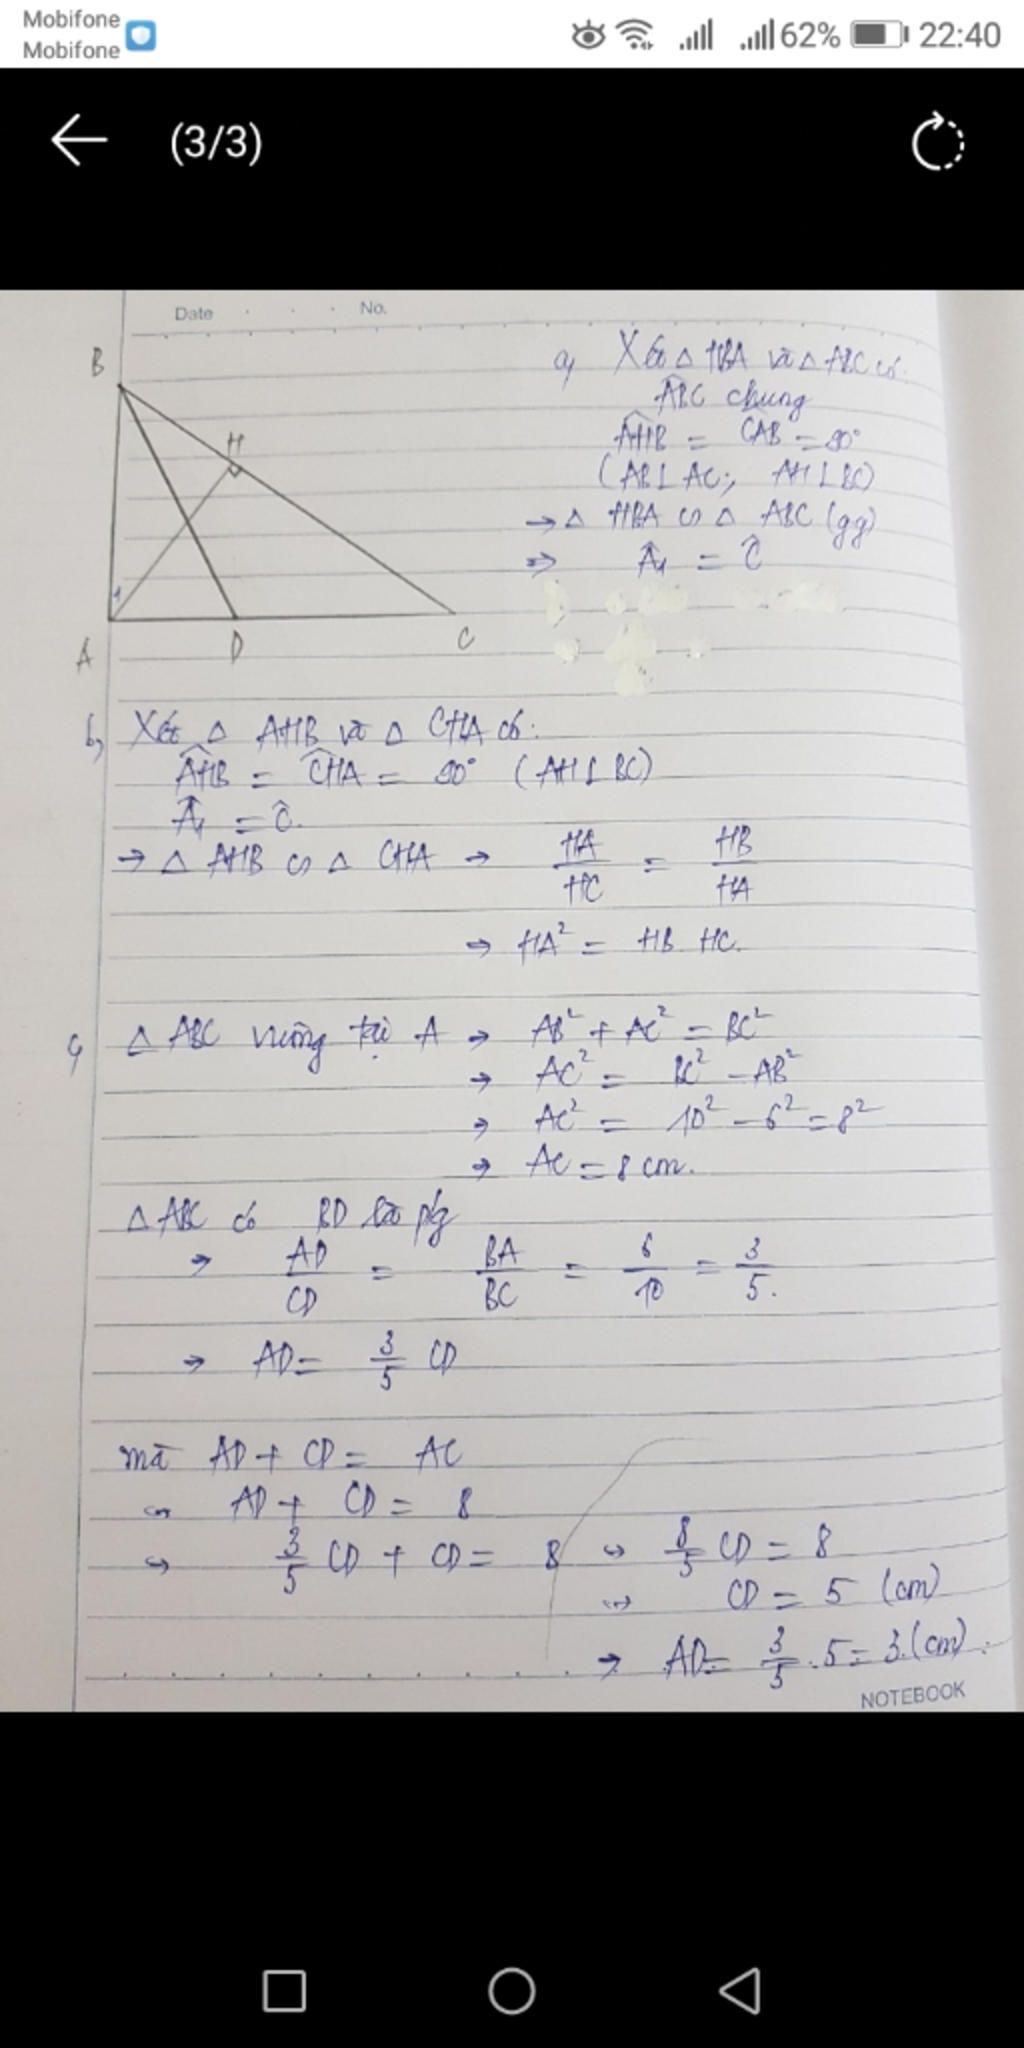 Mobifone
Mobifone
62% 22:40
(3/3)
Date No.
B
H
1
A D C
a, Xét △ HBA và △ ABC có:
ABC chung
AHB = CAB = 90°
(AB ⊥ AC; AH ⊥ BC)
→ △ HBA ∽ △ ABC (gg)
⇒ Â₁ = Ĉ
b, Xét △ AHB và △ CHA có:
AHB = CHA = 90° (AH ⊥ BC)
Â₁ = Ĉ.
→ △ AHB ∽ △ CHA → HA/HC = HB/HA
⇒ HA² = HB. HC.
c, △ ABC vuông tại A → AB² + AC² = BC²
→ AC² = BC² - AB²
→ AC² = 10² - 6² = 8²
→ AC = 8 cm.
△ ABC có BD là p/g
→ AD/CD = BA/BC = 6/10 = 3/5.
→ AD = 3/5 CD
mà AD + CD = AC
⇔ AD + CD = 8
⇔ 3/5 CD + CD = 8 ⇔ 8/5 CD = 8
⇔ CD = 5 (cm)
→ AD = 3/5 . 5 = 3 (cm).
NOTEBOOK